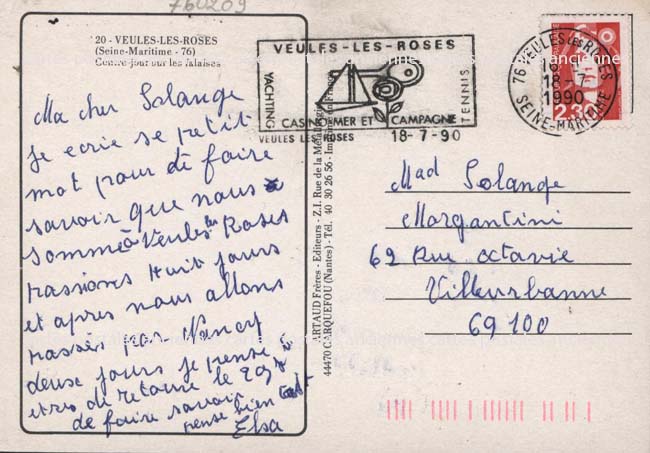 760209
20 - VEULES-LES-ROSES
(Seine-Maritime - 76)
Contre-jour sur les falaises
Ma cher Solange
je ecrie se petit
mot pour te faire
savoir que nous
somme a Veules les Roses
passiones Huit jours
et apres nous allons
passés par Nancy
deuse jours je pense
etres de retoure le 29
de faire savoir
pense bien
Elsa
ARTAUD Frères - Editeurs - Z.I. Rue de la Métallurgie
44470 CARQUEFOU (Nantes) - Tél. 40 30 26 56 - Imprimé en France
VEULES-LES-ROSES
YACHTING
TENNIS
CASINO MER ET CAMPAGNE
VEULES LES ROSES 18-7-90
76 VEULES LES ROSES
18-7
1990
SEINE-MARITIME
2,30
Mad Solange
Morgantini
62 Rue octavie
Villeurbanne
69100